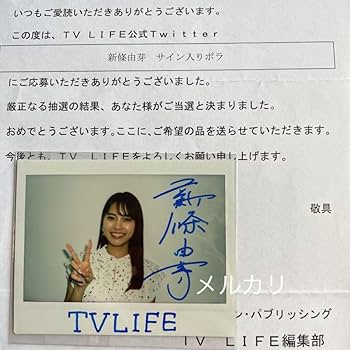 いつもご愛読いただきありがとうございます。
この度は、TV LIFE公式Twitter
新條由芽 サイン入りポラ
にご応募いただきありがとうございました。
厳正なる抽選の結果、あなた様がご当選と決まりました。
おめでとうございます。ここに、ご希望の品を送らせていただきます。
今後とも、TV LIFEをよろしくお願い申し上げます。
敬具
新條由芽
メルカリ
TVLIFE
ン・パブリッシング
TV LIFE編集部